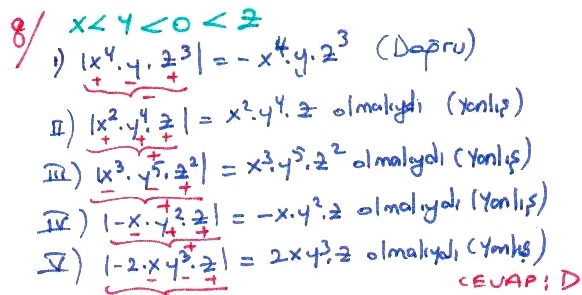 8/ x < y < 0 < z
I) |x⁴.y.z³| = -x⁴.y.z³ (Doğru)
+ - +
-
II) |x².y⁴.z| = x².y⁴.z olmalıydı (Yanlış)
+ + +
+
III) |x³.y⁵.z²| = x³.y⁵.z² olmalıydı (Yanlış)
- - +
+
IV) |-x.y².z| = -x.y².z olmalıydı (Yanlış)
- + +
+
V) |-2.x.y³.z| = 2xy³.z olmalıydı (Yanlış)
- - - +
CEVAP: D